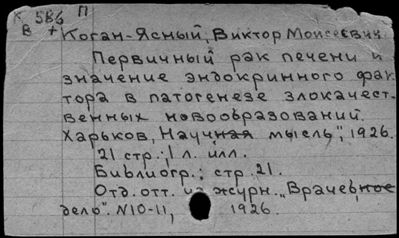 К 586 П
В + Коган-Ясный, Виктор Моисеевич.
Первичный рак печени и
значение эндокринного фак-
тора в патогенезе злокачест-
венных новообразований.
Харьков, "Научная мысль", 1926.
21 стр.; 1 л. илл.
Библиогр.: стр. 21.
Отд. отт. из журн. "Врачебное
дело". N10-11, 1926.